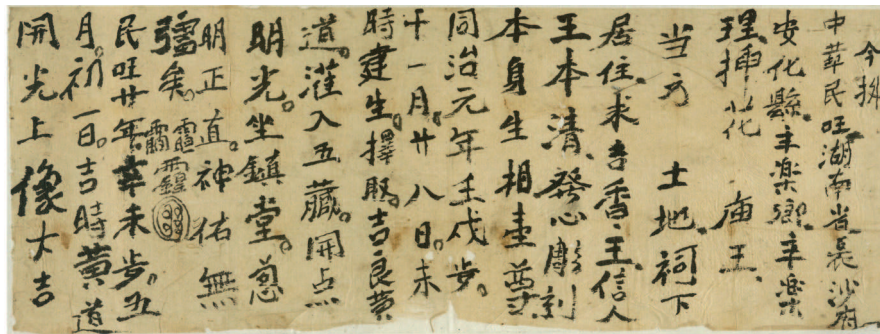 今据
中華民旺湖南省長沙府
安化縣丰楽鄉丰楽
理挿花 庙王
当方 土地祠下
居住求吉香王信人
王本清發心雕刻
本身生相壹尊
同治元年壬戌岁
十一月廿八日未
時建生擇取吉良黄
道灌入五藏開点
明光坐鎮堂
明正直神佑無
彊矣
民旺廿年辛未岁五
月初一日吉時黄道
開光上像大吉